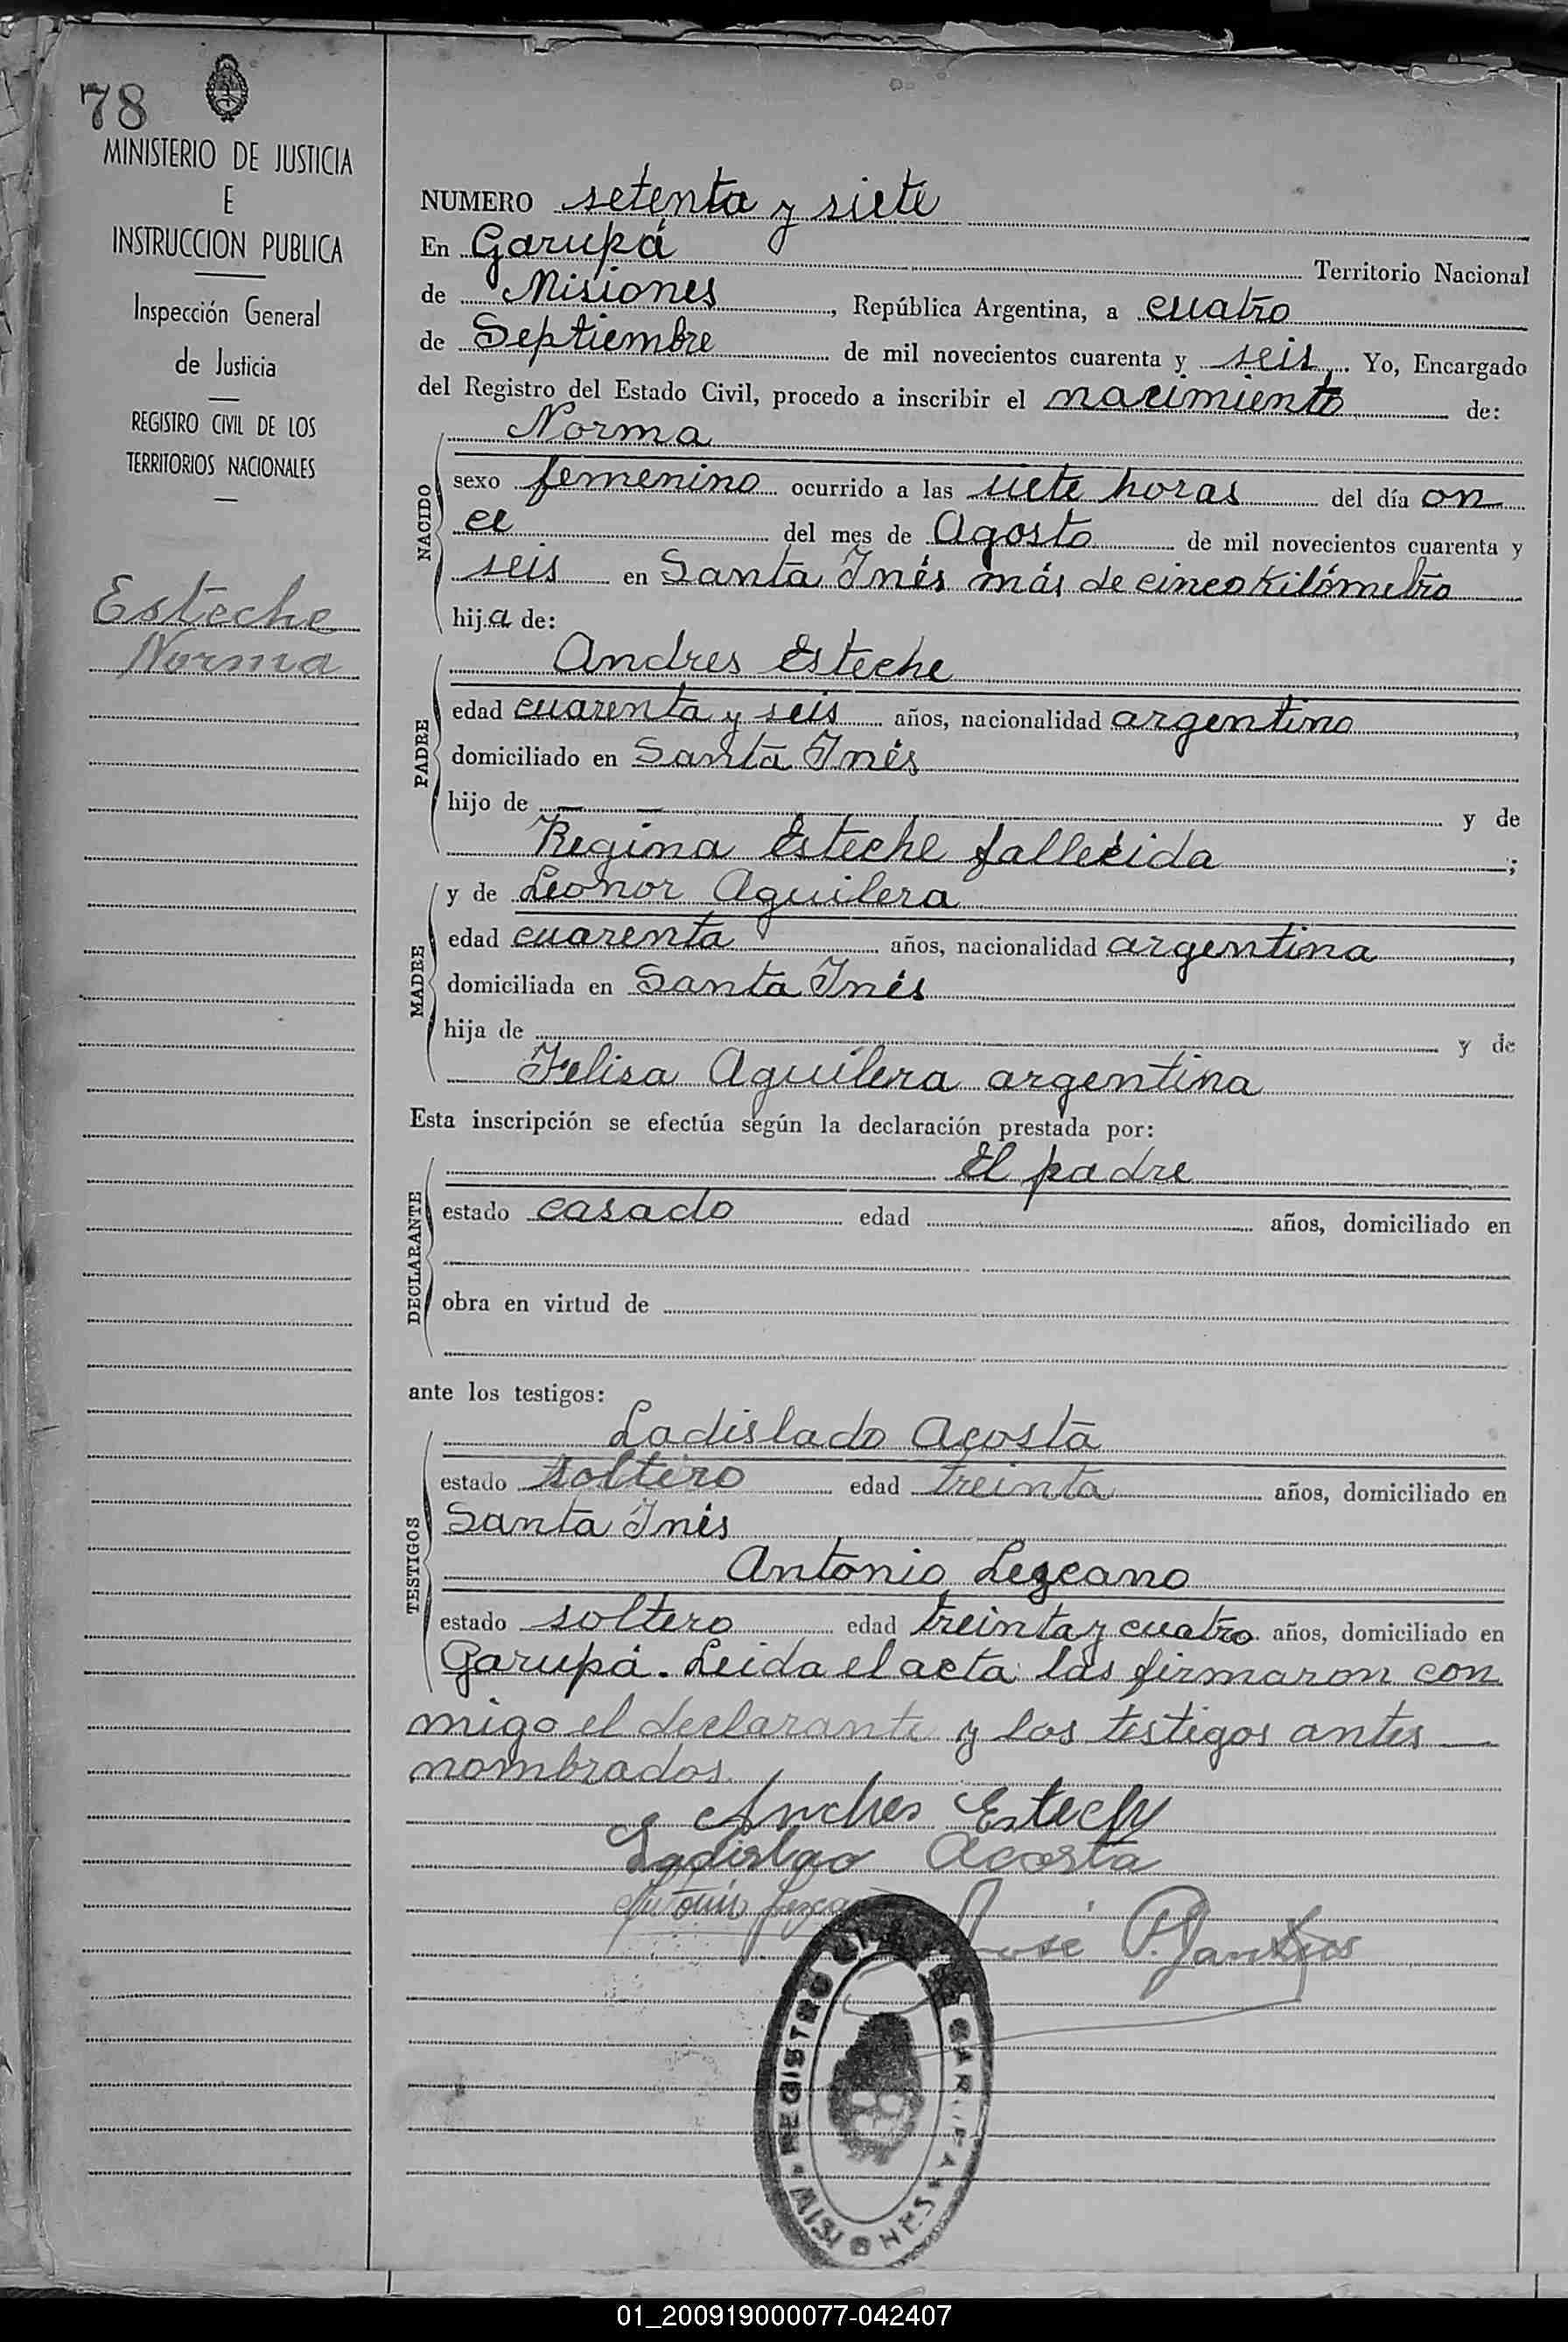 78
MINISTERIO DE JUSTICIA
E
INSTRUCCION PUBLICA
Inspección General
de Justicia
REGISTRO CIVIL DE LOS
TERRITORIOS NACIONALES
Esteche
Norma
NUMERO setenta y siete
En Garupá Territorio Nacional
de Misiones, República Argentina, a cuatro
de Septiembre de mil novecientos cuarenta y seis. Yo, Encargado
del Registro del Estado Civil, procedo a inscribir el nacimiento de:
NACIDO
Norma
sexo femenino ocurrido a las siete horas del día on
ce del mes de Agosto de mil novecientos cuarenta y
seis en Santa Inés más de cinco Kilómetro
hija de:
PADRE
Andres Esteche
edad cuarenta y seis años, nacionalidad argentino,
domiciliado en Santa Inés
hijo de — — y de
Regina Esteche fallecida;
MADRE
y de Leonor Aguilera
edad cuarenta años, nacionalidad argentina,
domiciliada en Santa Inés
hija de y de
Felisa Aguilera argentina
Esta inscripción se efectúa según la declaración prestada por:
DECLARANTE
El padre
estado casado edad años, domiciliado en
obra en virtud de
ante los testigos:
TESTIGOS
Ladislado Acosta
estado soltero edad treinta años, domiciliado en
Santa Inés
Antonio Lezcano
estado soltero edad treinta y cuatro años, domiciliado en
Garupá. Leida el acta las firmaron con
migo el declarante y los testigos antes —
nombrados.
Andres Esteche
Ladislao Acosta
Antonio
José P.
REGISTRO CIVIL GARUPA
MISIONES
01_200919000077-042407